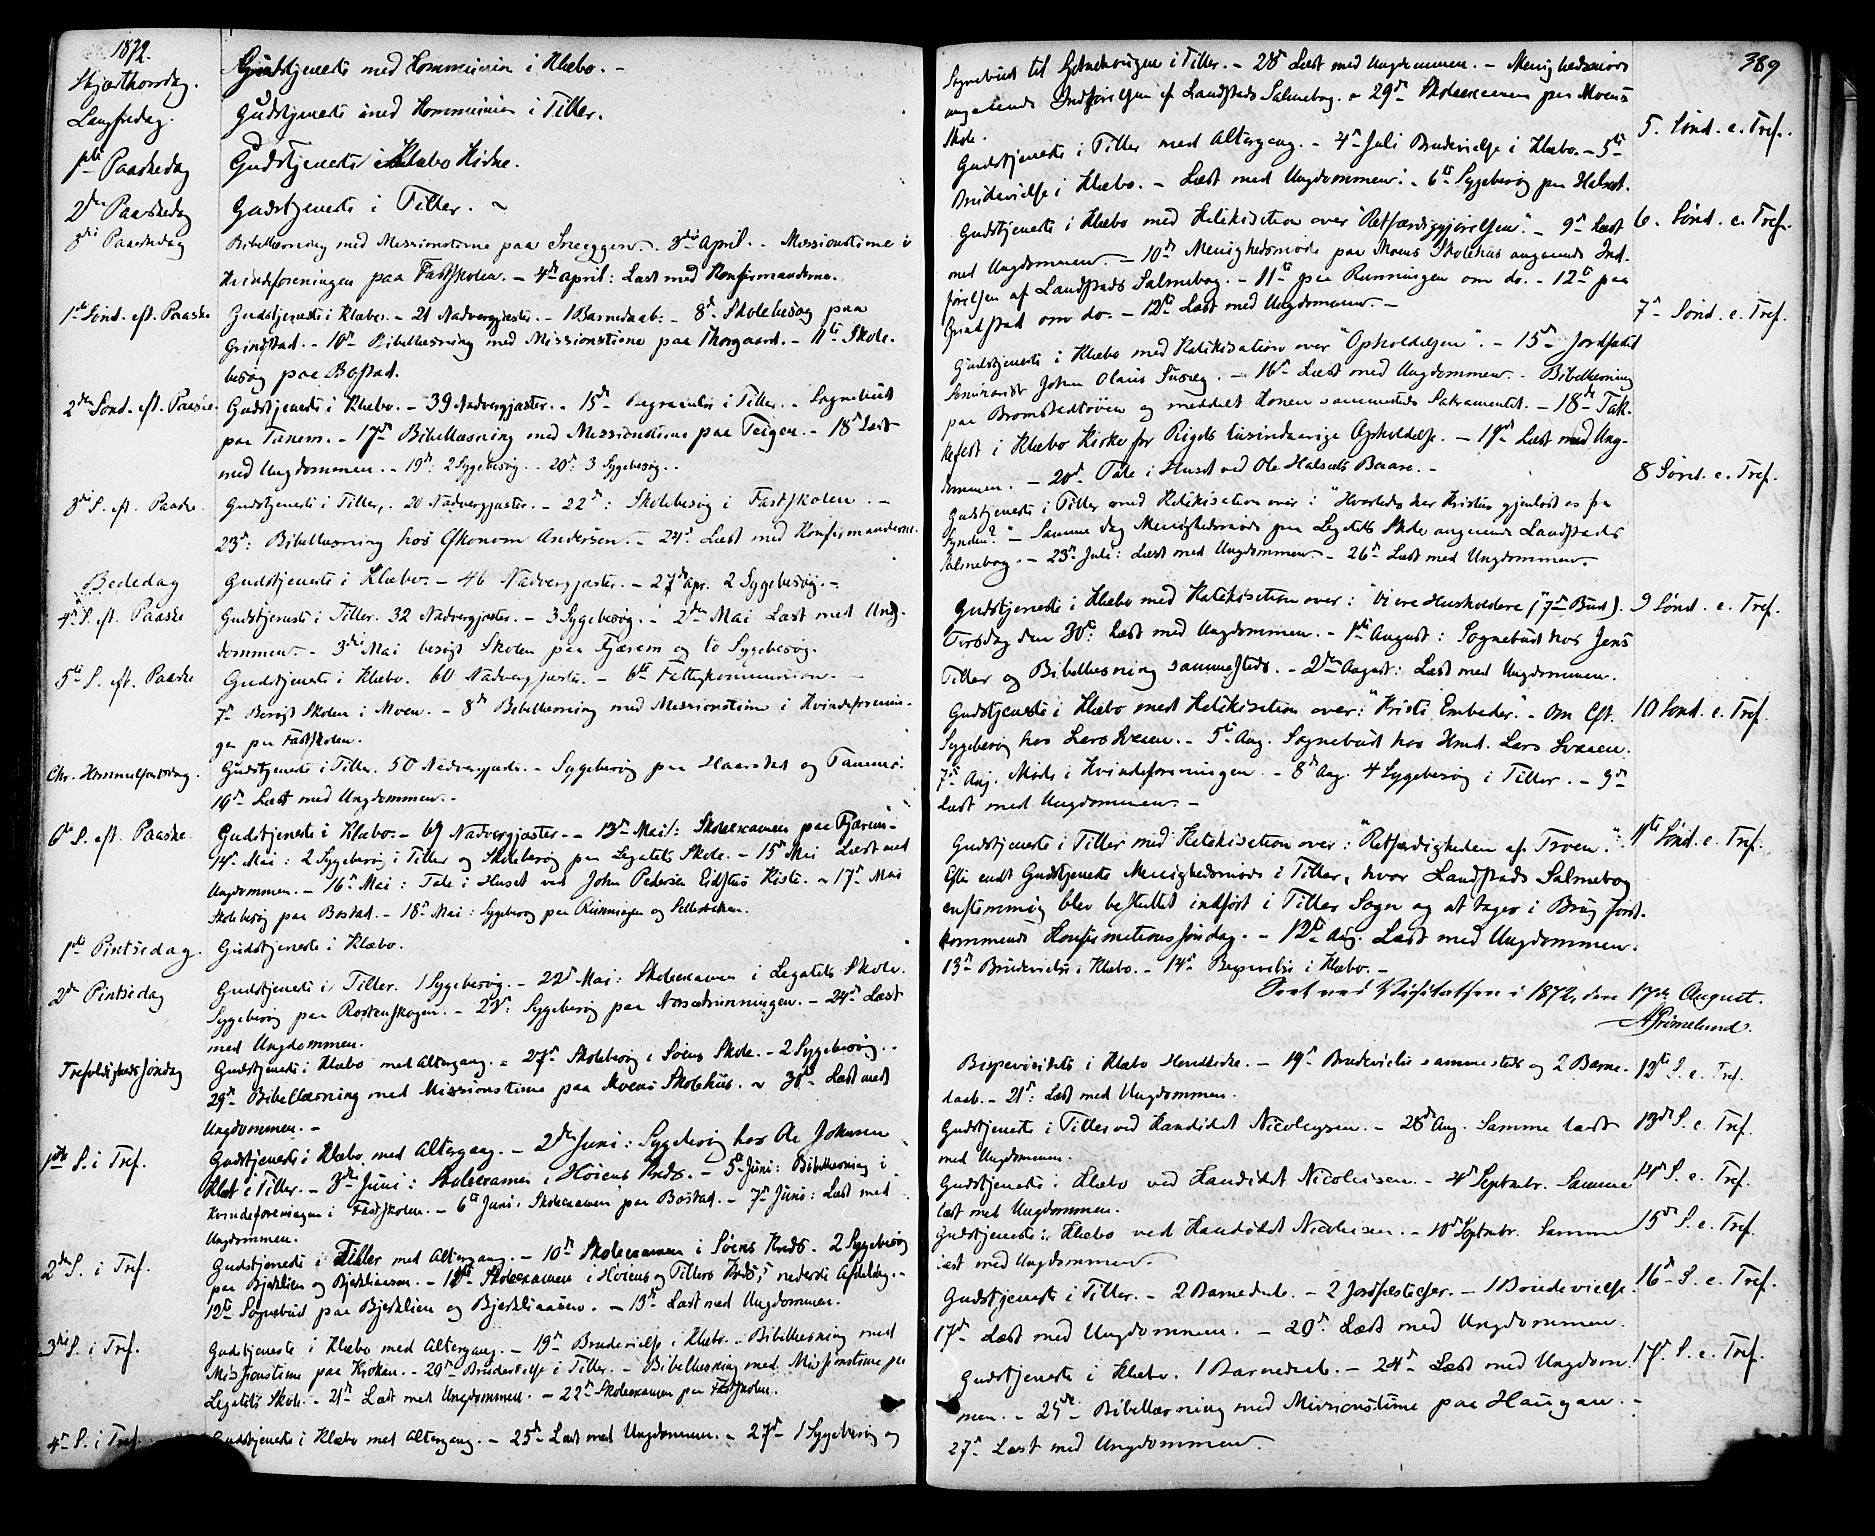 1872.
Skjærthorsdag. Gudstjeneste med Kommunion i Klæbo. -
Langfredag. Gudstjeneste med Kommunion i Tiller.
1ste Paaskedag Gudstjeneste i Klæbo Kirke.
2den Paaskedag Gudstjeneste i Tiller. -
3die Paaskedag Bibellæsning med Missionstime paa Sneeggen. - 3die April. - Missionstime i
Kvindeforeningen paa Fastskolen. - 4de April: Læst med Konfirmanderne.
1ste Sønd. eft. Paaske Gudstjeneste i Klæbo. - 21 Nadvergjæster. - 1 Barnedaab. - 8de Skolebesøg paa
Grindstad. - 10de Bibellæsning med Missionstime paa Thorgaard. - 11te Skole-
besøg paa Bostad.
2den Sønd. eft. Paaske. Gudstjeneste i Klæbo. - 39 Nadvergjæster. - 15de Begravelse i Tiller. - Sognebud
paa Tanem. - 17de Bibellæsning med Missionstime paa Teigen. - 18de Læst
med Ungdommen. - 19de: 2 Sygebesøg. - 20de: 3 Sygebesøg. -
3die S. eft. Paaske. Gudstjeneste i Tiller. 20 Nadvergjæster. - 22de: Skolebesøg i Fastskolen. -
23de: Bibellæsning hos Økonom Andersen. - 24de: Læst med Konfirmanderne.
Bededag Gudstjeneste i Klæbo. - 46 Nadvergjæster. - 27de Apr. 2 Sygebesøg. -
4de S. eft. Paaske Gudstjeneste i Tiller. 32 Nadvergjæster. - 3 Sygebesøg. - 2den Mai Læst med Ung-
dommen. - 3die Mai besøgt Skolen paa Fjærem og to Sygebesøg.
5te S. eft. Paaske Gudstjeneste i Klæbo. 60 Nadvergjæster. - 6te Fattigkommission. -
7de Besøgt Skolen i Moen. - 8de Bibellæsning med Missionstime i Kvindeforenin-
gen paa Fastskolen.
Chr. Himmelfartsdag. Gudstjeneste i Tiller. 50 Nadvergjæster. - Sygebesøg paa Haarstad og Tanem.
10de Læst med Ungdommen. -
6te S. eft. Paaske Gudstjeneste i Klæbo. - 69 Nadvergjæster. - 13de Mai: Skoleexamen paa Fjærem. -
14de Mai: 2 Sygebesøg i Tiller og Skolebesøg paa Legatets Skole. - 15de Mai Læst med
Ungdommen. - 16de Mai: Tale i Huset ved John Pedersen Eidstus Kiste. - 17de Mai
Skolebesøg paa Bostad. - 18de Mai: Sygebesøg paa Rønningen og
1ste Pintsedag. Gudstjeneste i Klæbo.
2den Pintsedag Gudstjeneste i Tiller. 1 Sygebesøg. - 22de Mai: Skoleexamen i Legatets Skole.
Sygebesøg paa Rostenskogen. - 23de: Sygebesøg paa - 24de Læst
med Ungdommen.
Trefoldigheds Søndag Gudstjeneste i Klæbo med Altergang. - 27de Skolebesøg i Søens Skole. - 2 Sygebesøg. -
29de Bibellæsning med Missionstime paa Moens Skolehus. - 31te Læst med
Ungdommen. -
1ste S. i Tref. Gudstjeneste i Klæbo med Altergang. - 2den Juni: Sygebesøg hos Ole Johnsen
Klæt i Tiller. - 3die Juni: Skoleexamen i Høiens Kreds. - 5te Juni: Bibellæsning i
Kvindeforeningen i Fastskolen. - 6te Juni: Skoleexamen paa Bostad. - 7de Juni: Læst med
Ungdommen.
2den S. i Tref. Gudstjeneste i Tiller med Altergang. - 10de Skoleexamen i Søens Kreds. 2 Sygebesøg
paa Bjerklien og Bjerkliaasen. - 11te Skoleexamen i Høiens og Tillers Kreds, nederste Afdeling. -
12te Sognebud paa Bjerklien og Bjerkliaasen. - 13de Læst med Ungdommen.
3die S. i Tref. Gudstjeneste i Klæbo med Altergang. - 19de Brudevielse i Klæbo. - Bibellæsning med
Missionstime paa Kroken. - 20de Brudevielse i Tiller. - Bibellæsning med Missionstime paa
Legatets Skole. - 21de Læst med Ungdommen. - 22de Skoleexamen paa Fastskolen.
4de S. i Tref. Gudstjeneste i Klæbo med Altergang. - 25de Læst med Ungdommen. - 27de 1 Sygebesøg og
389
Sognebud til i Tiller. - 28de Læst med Ungdommen. - Menighedsmøde
angaaende Indførelsen af Landstads Salmebog. - 29de Skoleexamen paa Moens
Skole.
Gudstjeneste i Tiller med Altergang. - 4de Juli Brudevielse i Klæbo. - 5te 5. Sønd. e. Tref.
Brudevielse i Klæbo. - Læst med Ungdommen. - 6te Sygebesøg paa Halset.
Gudstjeneste i Klæbo med Katekisation over "Retfærdiggjørelsen". - 9de Læst 6. Sønd. e. Tref.
med Ungdommen. - 10de Menighedsmøde paa Moens Skolehus angaaende Ind-
førelsen af Landstads Salmebog. - 11te paa Rønningen om do. - 12te paa
Grindstad om do. - 12te Læst med Ungdommen. -
Gudstjeneste i Klæbo med Katekisation over "Opholdelsen". - 15de Jordfæstet 7de Sønd. e. Tref.
Seminarist Johan Olaus - 16de Læst med Ungdommen. - Bibellæsning
paa Bromstadtrøen og meddelt Konen sammesteds Sakramentet. - 18de Tak-
kefest i Klæbo Kirke for Rigets tusindaarige Opholdelse. - 19de Læst med Ung-
dommen. - 20de Tale i Huset ved Ole Halsets Baare. -
Gudstjeneste i Tiller med Katekisation over: "Hvorledes har Kristus gjenløst os fra 8 Sønd. e. Tref.
Synden?" - Samme Dag Menighedsmøde paa Legatets Skole angaaende Landstads
Salmebog. - 23de Juli: Læst med Ungdommen. - 26de Læst med Ungdommen. -
Gudstjeneste i Klæbo med Katekisation over: "Vi ere Husholdere (7de Bud). 9 Sønd. e. Tref.
Tirsdag den 30te: Læst med Ungdommen. - 1ste August: Sognebud hos Jens
Tiller og Bibellæsning sammesteds. - 2den August: Læst med Ungdommen.
Gudstjeneste i Klæbo med Katekisation over: "Kristi Embeder". - Om Eft. 10 Sønd. e. Tref.
Sygebesøg hos Lars Svaen. - 5te Aug. Sognebud hos Hmd. Lars Svaen.
7de Aug. Møde i Kvindeforeningen. - 8de Aug. 4 Sygebesøg i Tiller. - 9de
Læst med Ungdommen. -
Gudstjeneste i Tiller med Katekisation over: "Retfærdigheden af Troen". 11te Sønd. e. Tref.
Efter endt Gudstjeneste Menighedsmøde i Tiller, hvor Landstads Salmebog
enstemmig blev besluttet indført i Tiller Sogn og at tages i Brug først-
kommende Konfirmationssøndag. - 12te Aug. Læst med Ungdommen.
13de Brudevielse i Klæbo. - 14de Begravelse i Klæbo. -
Seet ved Visitatsen i 1872, den 17de August.
A Grimelund.
Bispevisitats i Klæbo Hovedkirke. - 19de Brudevielse sammesteds og 2 Barne- 12te S. e. Tref.
daab. - 21de: Læst med Ungdommen.
Gudstjeneste i Tiller ved Kandidat Nicolaysen. - 28de Aug. Samme læst 13de S. e. Tref.
med Ungdommen.
Gudstjeneste i Klæbo ved Kandidat Nicolaisen. - 4de Septmbr. Samme 14de S. e. Tref.
læst med Ungdommen.
Gudstjeneste i Klæbo ved Kandidat Nicolaisen. - 10de Septmbr. Samme 15de S. e. Tref.
læst med Ungdommen.
Gudstjeneste i Tiller. - 2 Barnedaab. - 2 Jordfæstelser. - 1 Brudevielse. 16de S. e. Tref.
17de Læst med Ungdommen. - 20de Læst med Ungdommen.
Gudstjeneste i Klæbo. 1 Barnedaab. - 24de Læst med Ungdom- 17de S. e. Tref.
men. - 25de Bibellæsning med Missionstime paa Haugan. -
27de Læst med Ungdommen.